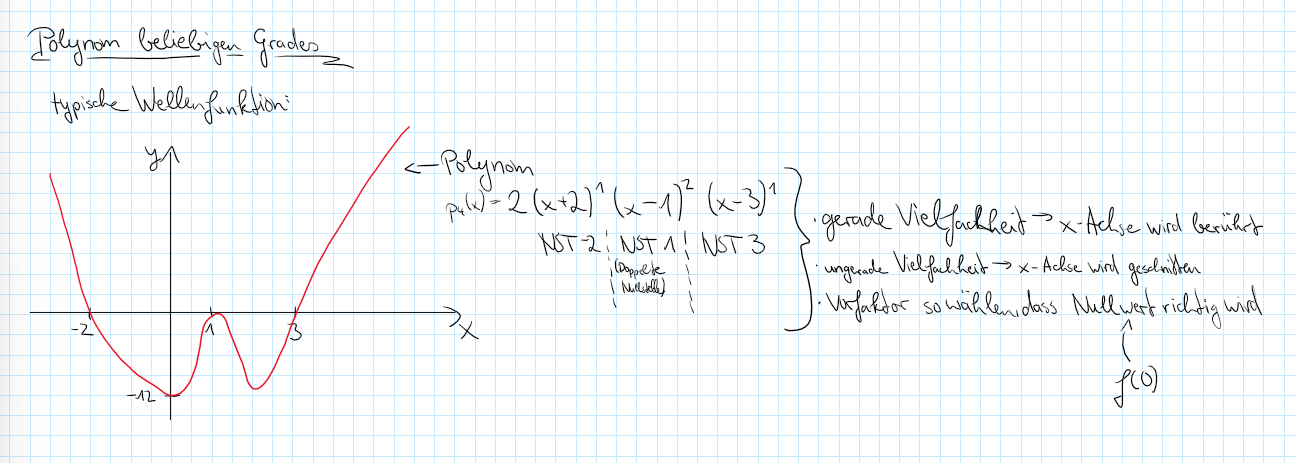 Polynom beliebigen Grades
typische Wellenfunktion:
y
← Polynom
p₄(x) = 2 (x+2)¹ (x-1)² (x-3)¹
NST -2 NST 1 NST 3
(Doppelte
Nullstelle)
· gerade Vielfachheit → x-Achse wird berührt
· ungerade Vielfachheit → x-Achse wird geschnitten
· Vorfaktor so wählen, dass Nullwert richtig wird
f(0)
-2 1 3 x
-12